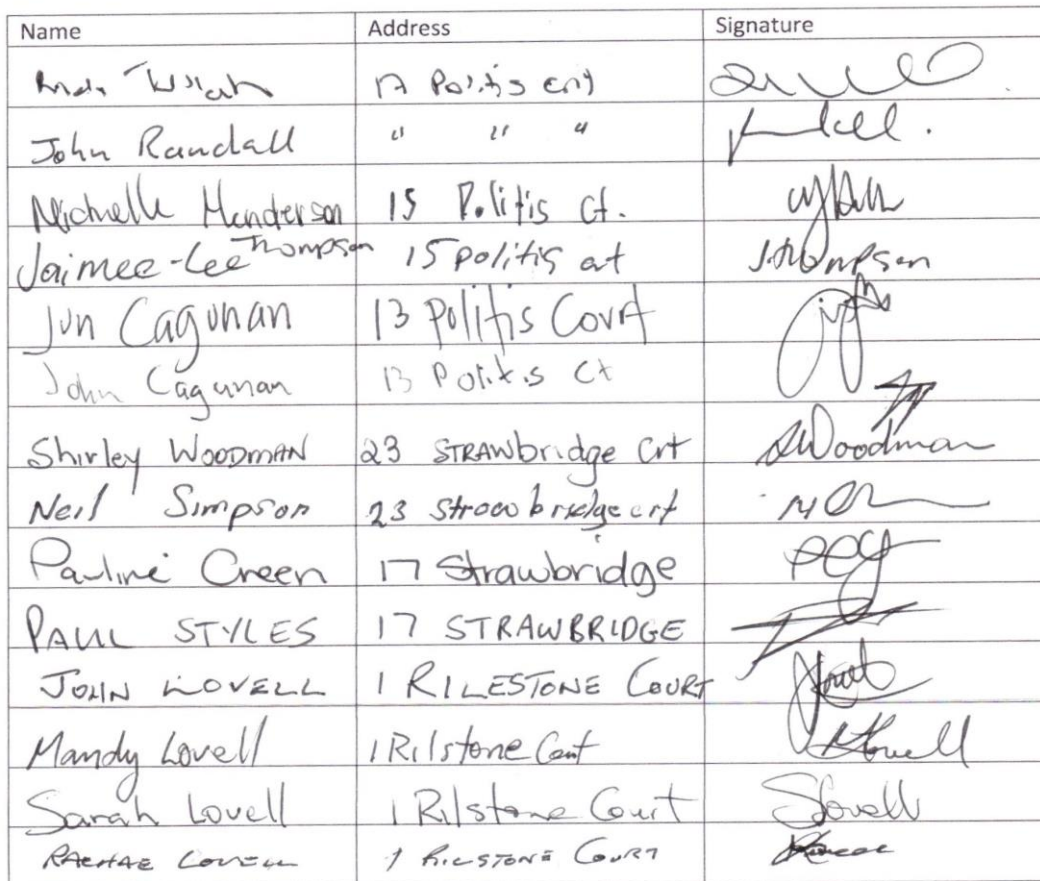 Name Address Signature
17 Politis crt
John Randall " " "
Michelle Henderson 15 Politis Ct.
Jaimee-Lee Thompson 15 politis crt J.Thompson
Jun Cagunan 13 Politis Court
John Cagunan 13 Politis Ct
Shirley WOODMAN 23 STRAWbridge Crt SWoodman
Neil Simpson 23 Strawbridge crt
Pauline Creen 17 Strawbridge
PAUL STYLES 17 STRAWBRIDGE
JOHN LOVELL 1 RILESTONE COURT
Mandy Lovell 1 Rilstone Court MLovell
Sarah Lovell 1 Rilstone Court SLovell
LOVELL 1 RILSTONE COURT